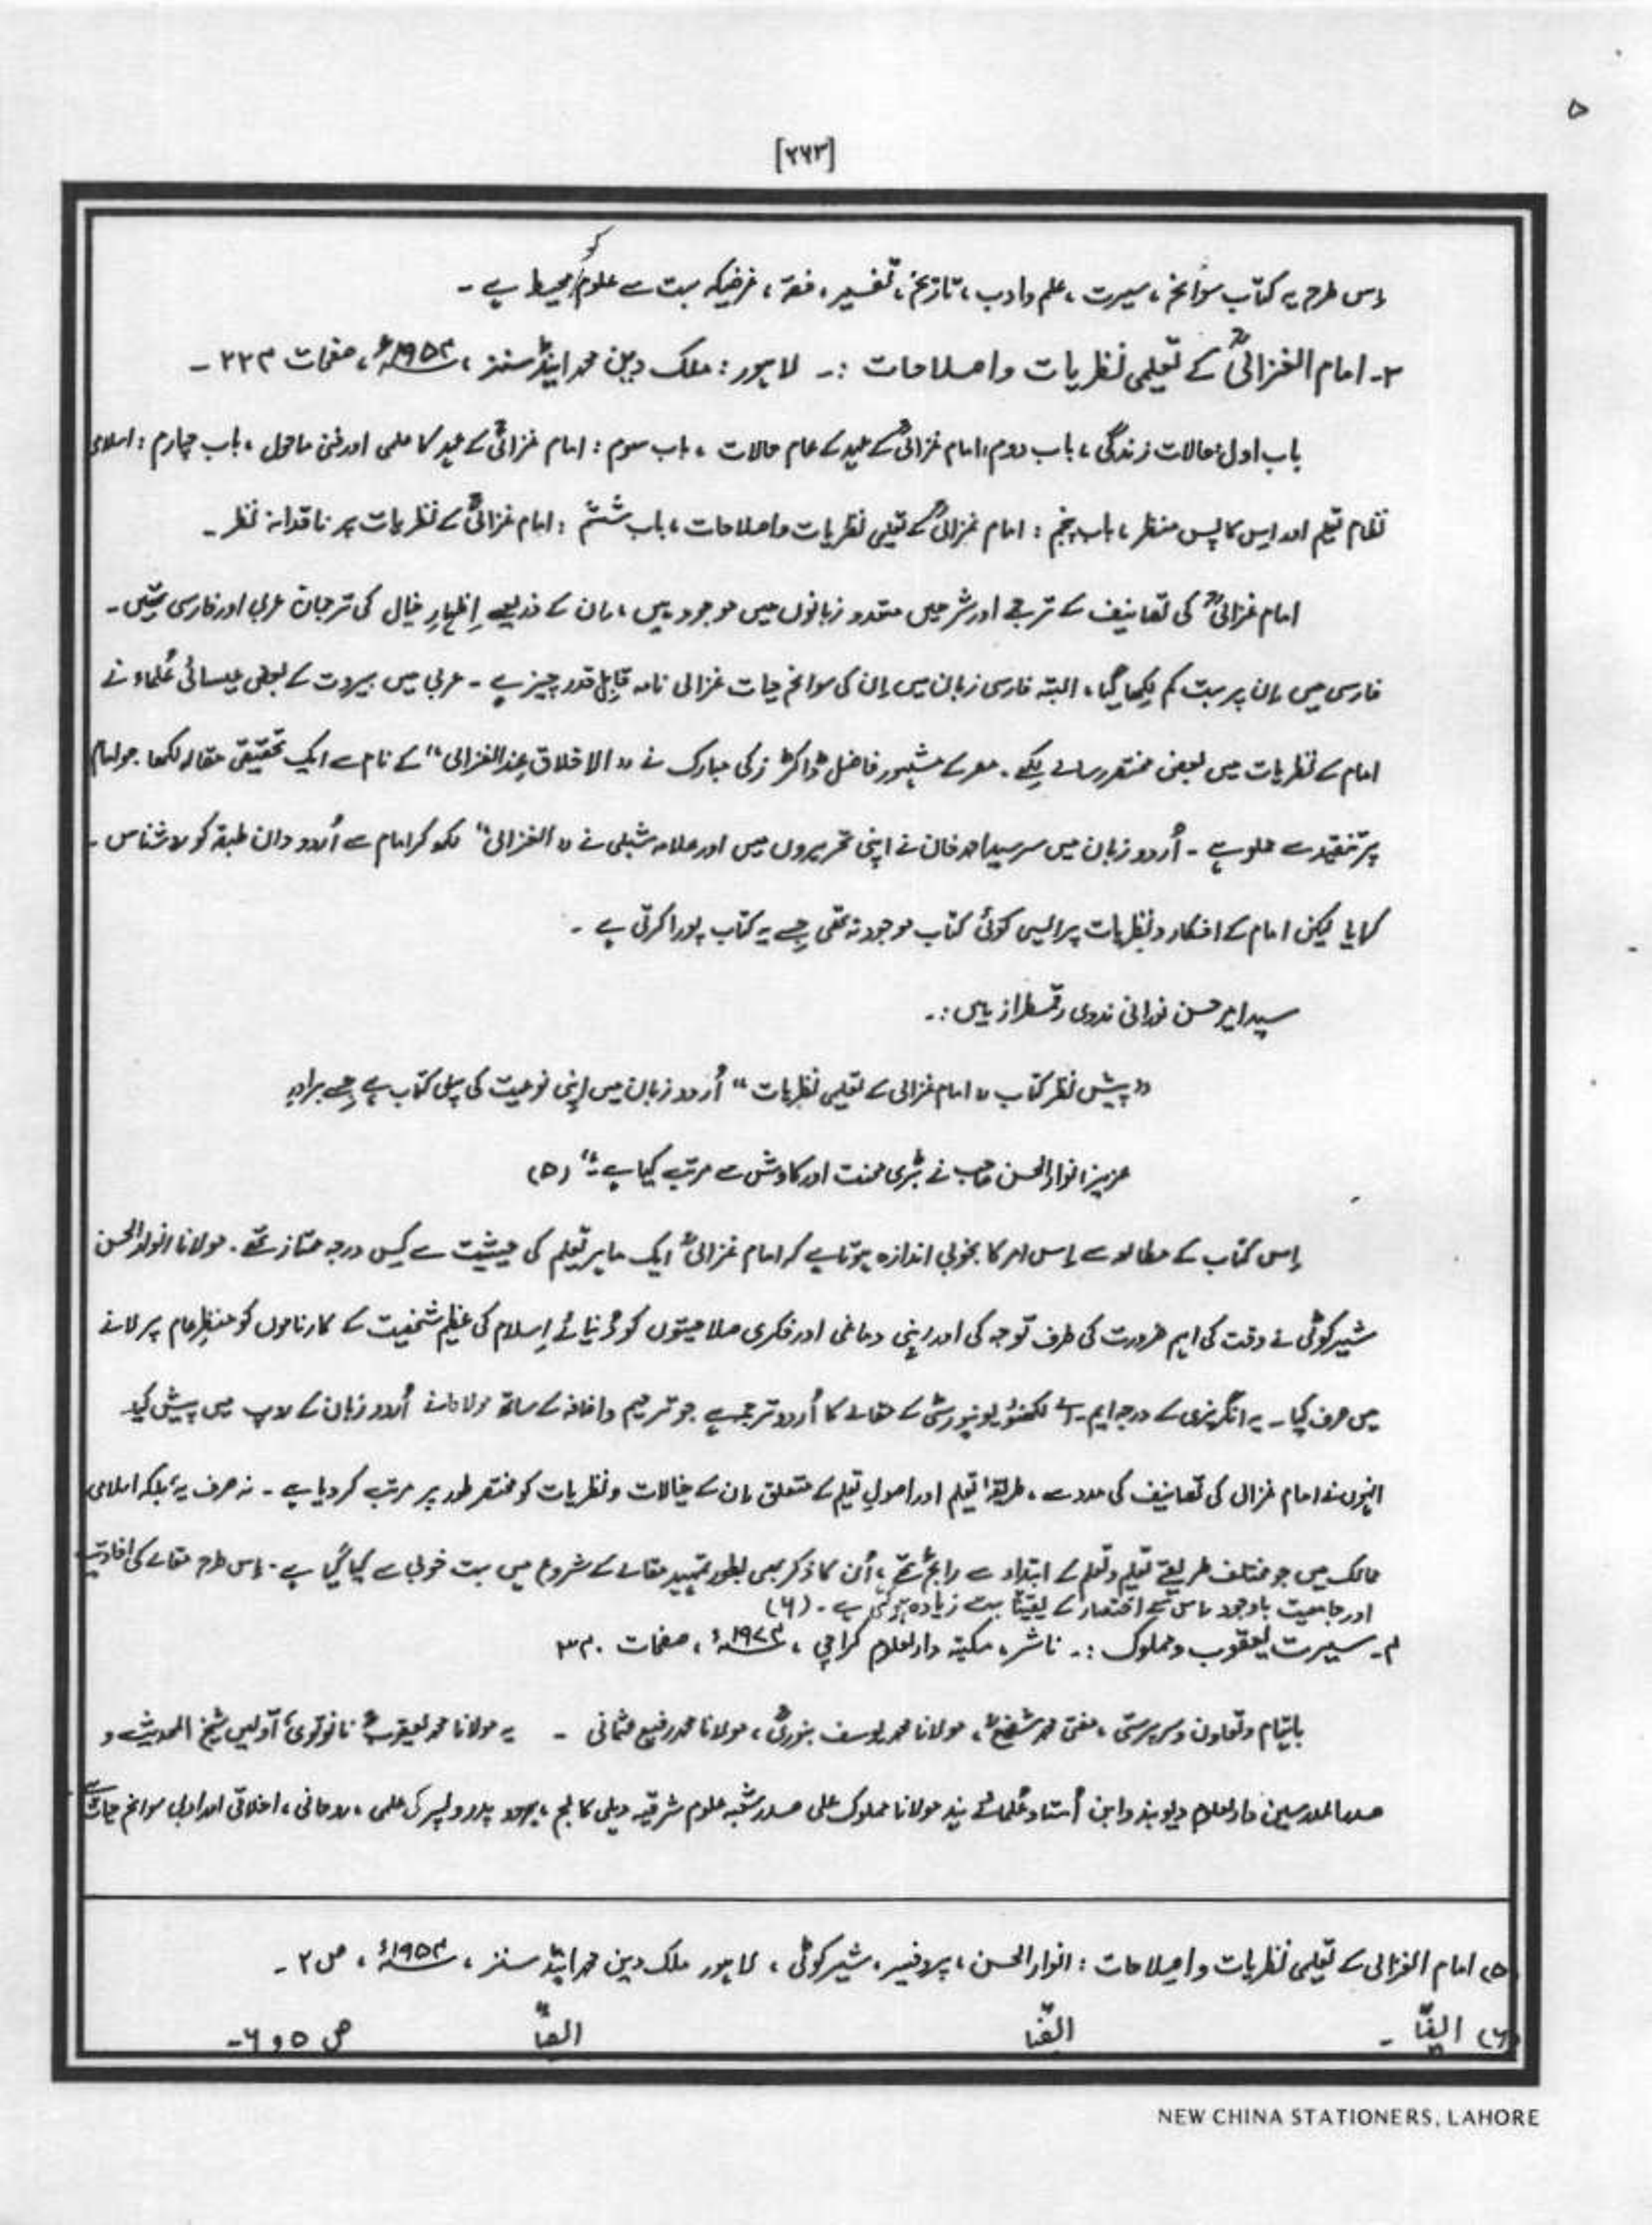 ۵
[۲۶۳]
اِس طرح یہ کتاب سوانح، سیرت، علم و ادب، تاریخ، تفسیر، فقہ، غرضیکہ بہت سے علوم کو محیط ہے ۔
۳۔ امام الغزالیؒ کے تعلیمی نظریات و اصلاحات :۔ لاہور : ملک دین محمد اینڈ سنز ، ۱۹۵۴ء ، صفحات ۲۲۴ ۔
باب اول : حالات زندگی ، باب دوم : امام غزالیؒ کے عہد کے عام حالات ، باب سوم : امام غزالیؒ کے عہد کا علمی اور فنی ماحول ، باب چہارم : اسلامی
نظام تعلیم اور اس کا پس منظر ، باب پنجم : امام غزالیؒ کے تعلیمی نظریات و اصلاحات ، باب ششم : امام غزالیؒ کے نظریات پر ناقدانہ نظر ۔
امام غزالیؒ کی تصانیف کے ترجمے اور شرحیں متعدد زبانوں میں موجود ہیں ، اِن کے ذریعے اِظہارِ خیال کی ترجمان عربی اور فارسی تھیں ۔
فارسی میں اِن پر بہت کم لِکھا گیا ، البتہ فارسی زبان میں اِن کی سوانح حیات غزالی نامہ قابلِ قدر چیز ہے ۔ عربی میں بیروت کے بعض عیسائی عُلماء نے
امام کے نظریات میں بعض مختصر رسالے لِکھے ۔ مصر کے مشہور فاضل ڈاکٹر زکی مبارک نے " الاخلاق عِند الغزالی " کے نام سے ایک تحقیقی مقالہ لکھا جو امام
پر تنقید سے مملو ہے ۔ اُردو زبان میں سر سید احمد خان نے اپنی تحریروں میں اور علامہ شبلی نے " الغزالی " لکھ کر امام سے اُردو دان طبقہ کو روشناس ۔
کرایا لیکن امام کے افکار و نظریات پر ایسی کوئی کتاب موجود نہ تھی جِسے یہ کتاب پورا کرتی ہے ۔
سید امیر حسن نورانی ندوی رقمطراز ہیں :۔
" پیش نظر کتاب " امام غزالی کے تعلیمی نظریات " اُردو زبان میں اپنی نوعیت کی پہلی کتاب ہے جِسے برادرِ
عزیز انوارالحسن صاحب نے بڑی محنت اور کاوش سے مرتب کیا ہے ۔" (۵)
اِس کتاب کے مطالعہ سے اِس امر کا بخوبی اندازہ ہوتا ہے کہ امام غزالیؒ ایک ماہرِ تعلیم کی حیثیت سے کِس درجہ ممتاز تھے ۔ مولانا انوارالحسن
شیرکوٹی نے وقت کی اہم ضرورت کی طرف توجہ کی اور اپنی دماغی اور فکری صلاحیتوں کو دُنیائے اِسلام کی عظیم شخصیت کے کارناموں کو منظرِ عام پر لانے
میں صرف کیا ۔ یہ انگریزی کے درجہ ایم ۔ اے لکھنؤ یونیورسٹی کے مقالے کا اُردو ترجمہ ہے جو ترمیم و اضافہ کے ساتھ مولانا نے اُردو زبان کے روپ میں پیش کیا
انہوں نے امام غزالی کی تصانیف کی مدد سے ، طریقۂ تعلیم اور اصولِ تعلیم کے متعلق اِن کے خیالات و نظریات کو مختصر طور پر مرتب کر دیا ہے ۔ نہ صرف یہ بلکہ اسلامی
ممالک میں جو مختلف طریقے تعلیم و تعلم کے ابتداء سے رائج تھے ، اُن کا ذکر بھی بطور تمہید مقالے کے شروع میں بہت خوبی سے کیا گیا ہے ۔ اِس طرح مقالے کی افادیت
اور جامعیت باوجود اِس کے اختصار کے یقیناً بہت زیادہ ہو گئی ہے ۔ (۶)
۴۔ سیرت یعقوب و مملوک :۔ ناشر ، مکتبہ دارالعلوم کراچی ، ۱۹۷۴ء ، صفحات ۳۴۰
باہتمام و تعاون و سرپرستی ، مفتی محمد شفیعؒ ، مولانا محمد یوسف بنوریؒ ، مولانا محمد رفیع عثمانی ۔ یہ مولانا محمد یعقوبؒ نانوتویؒ ، اَولیں شیخ الحدیث و
صدر المدرسین دارالعلوم دیوبند و ابن اُستاد عُلمائے ہند مولانا مملوک علی صدر شعبہ علوم شرقیہ دہلی کالج ، ہردو پدر و پسر کی علمی ، روحانی ، اخلاقی اور ادبی سوانح حیات ہے
(۵) امام الغزالی کے تعلیمی نظریات و اصلاحات : انوارالحسن ، پروفیسر ، شیرکوٹی ، لاہور ملک دین محمد اینڈ سنز ، ۱۹۵۴ء ، ص ۲ ۔
(۶) ایضاً ۔ ایضاً ایضاً ص ۵ و ۶ ۔
NEW CHINA STATIONERS, LAHORE